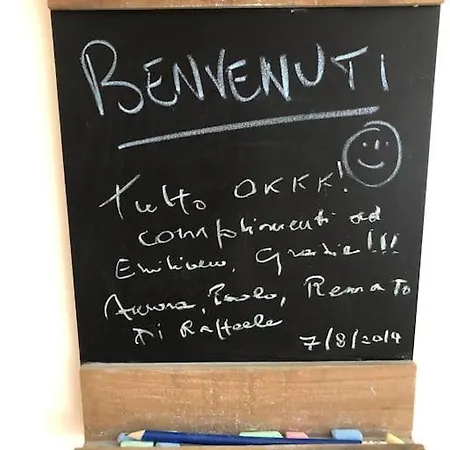 BENVENUTI
Tutto OKKK!
complimenti ad
Grazie!!!
Aurora, Paolo, Renato
Di Raffaele
7/8/2019